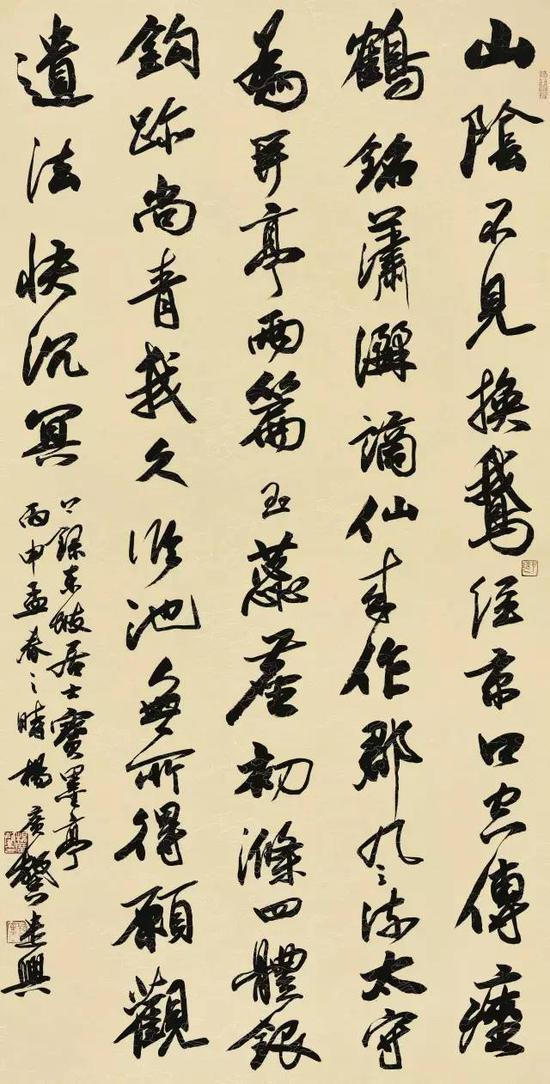 山陰不見換鵝經京口空傳瘞
鶴銘瀟灑謫仙來作郡風流太守
為開亭兩篇玉蕊塵初滌四體銀
鈎跡尚青我久臨池無所得願觀
遺法快沉冥
上錄東坡居士寶墨亭
丙申孟春之時楊廣馨